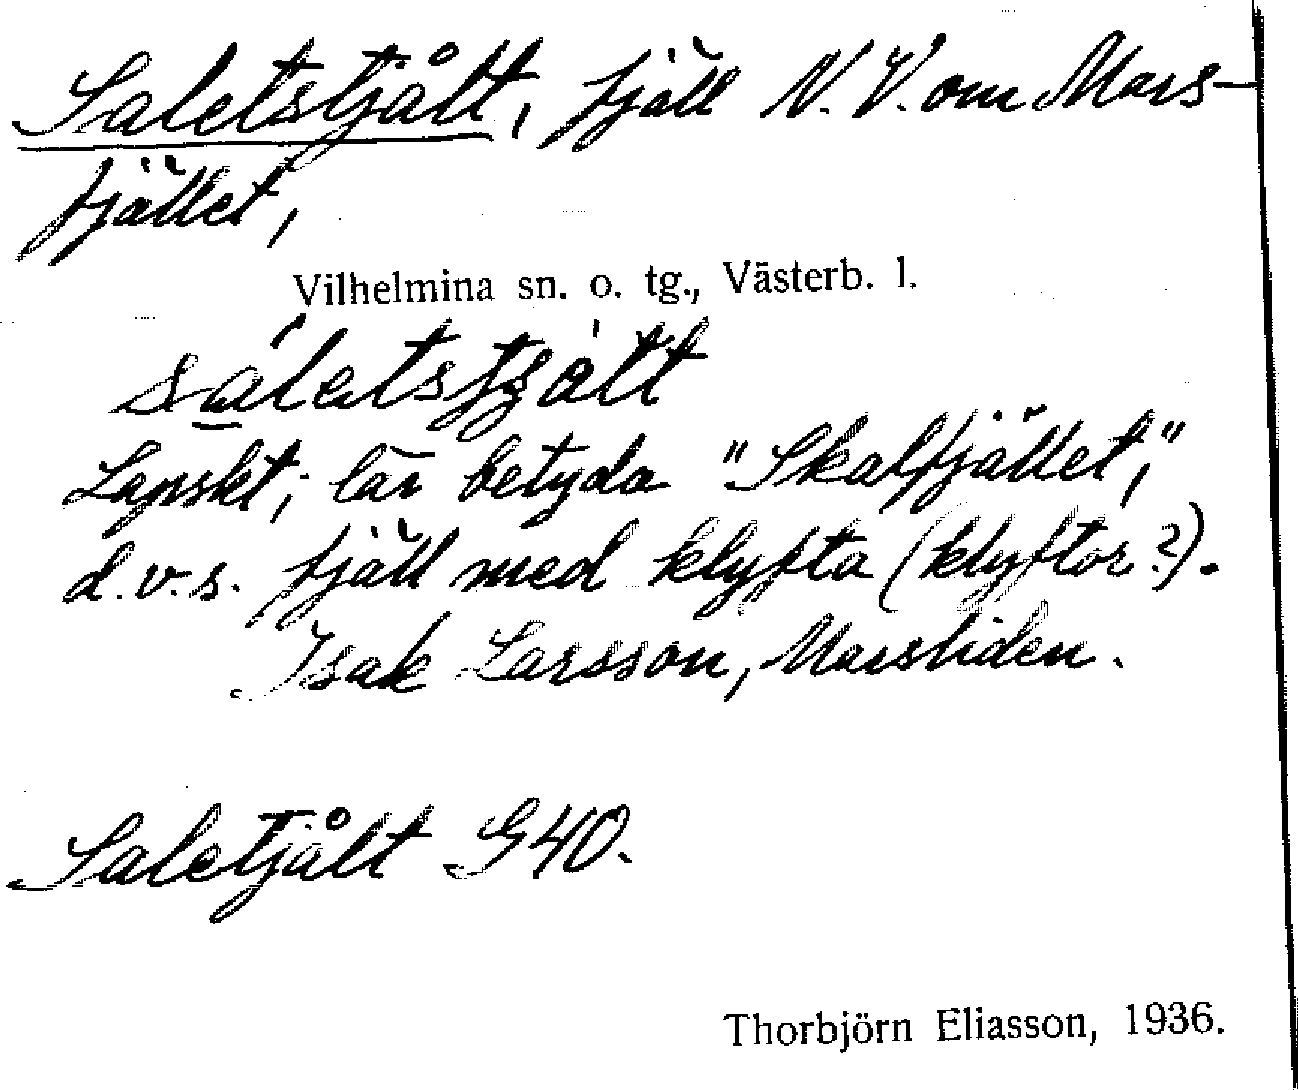 Saletstjålt, fjäll N.V. om Mars-
fjället,
Vilhelmina sn. o. tg., Västerb. l.
Lapskt; lär betyda "Skalfjället,"
d.v.s. fjäll med klyfta (klyftor?).
Isak Larsson, Marsliden.
Saletjålt G40.
Thorbjörn Eliasson, 1936.